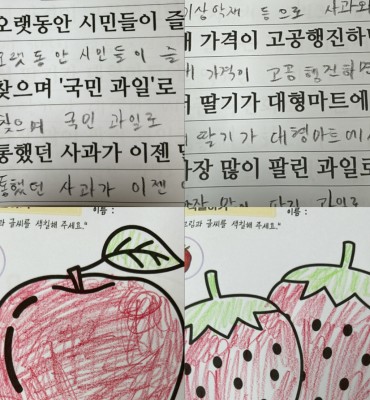 오랫동안 시민들이 즐
오랫동안 시민들이 즐
찾으며 '국민 과일'로
찾으며 국민 과일로
통했던 사과가 이젠
통했던 사과가 이젠
등으로 사과와
가격이 고공행진하
가격이 고공행진하면
딸기가 대형마트에
딸기가 대형마트에
많이 팔린 과일로
많이 팔린 과일로
글씨를 색칠해 주세요."
이름 :
글씨를 색칠해 주세요."